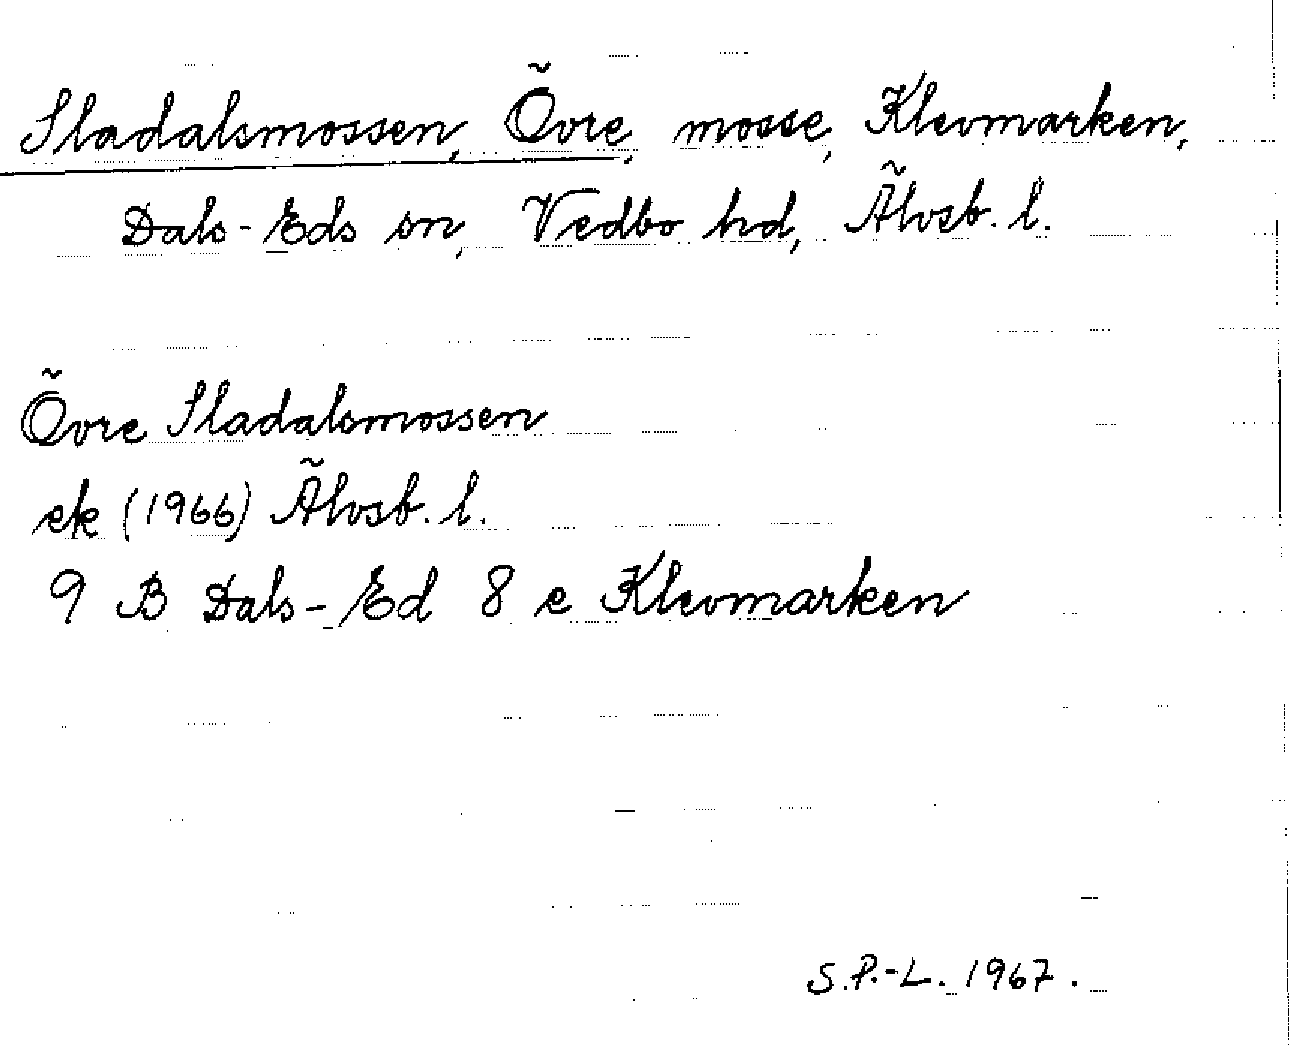 Sladalsmossen, Övre, mosse, Klevmarken,
Dals-Eds sn, Vedbo hd, Älvsb. l.
Övre Sladalsmossen
ek (1966) Älvsb. l.
9 B Dals-Ed 8 e Klevmarken
S.P.-L. 1967.